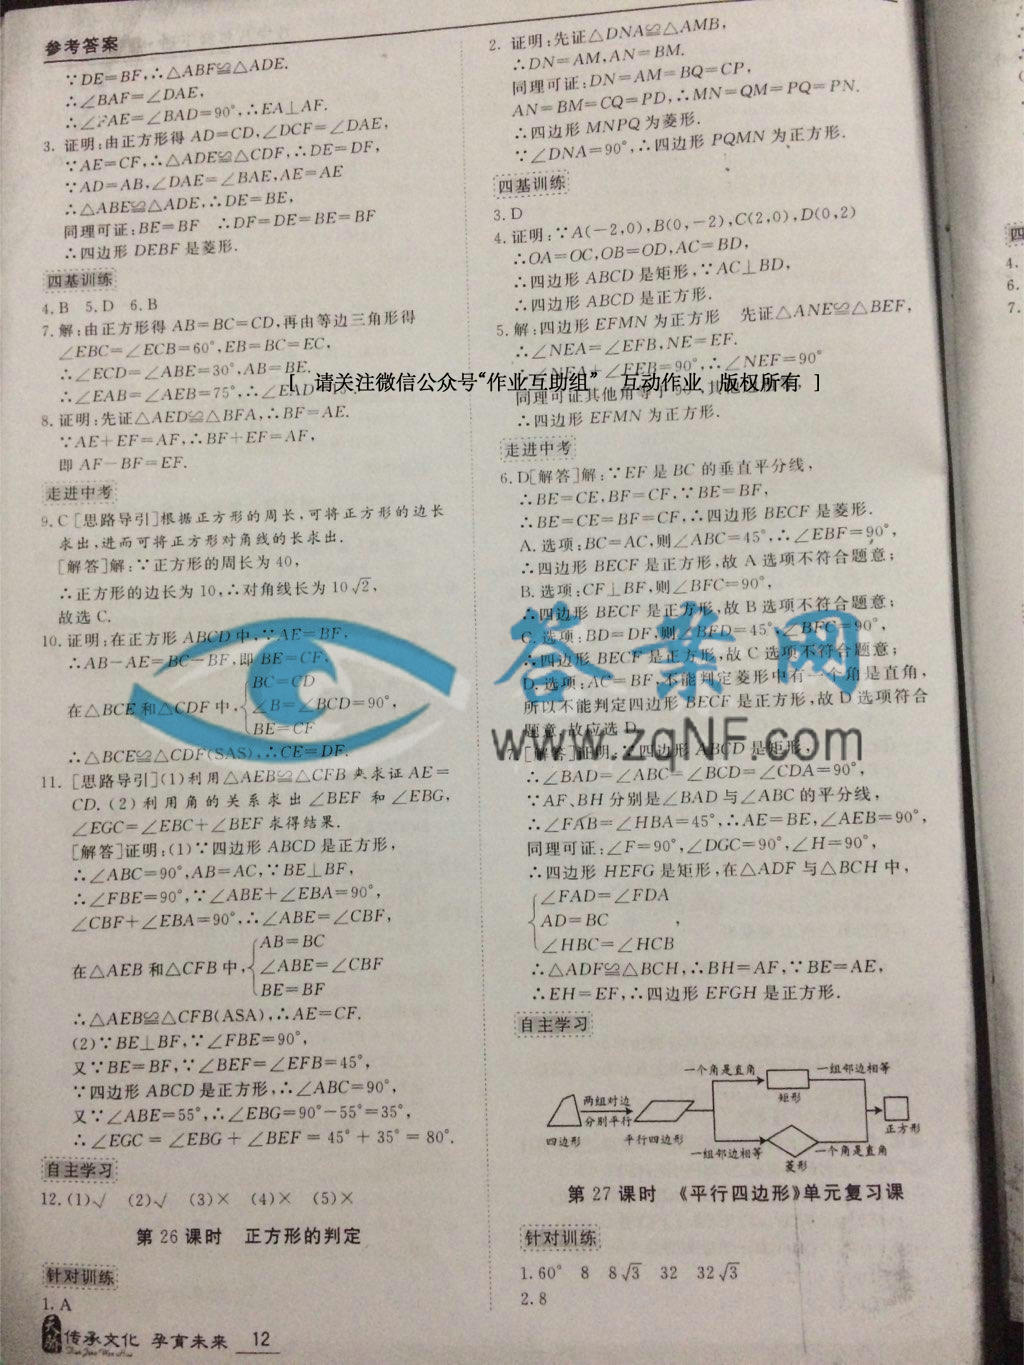 参考答案
∵DE=BF,∴△ABF≌△ADE.
∴∠BAF=∠DAE,
∴∠FAE=∠BAD=90°,∴EA⊥AF.
3. 证明:由正方形得 AD=CD,∠DCF=∠DAE,
∵AE=CF,∴△ADE≌△CDF,∴DE=DF,
∵AD=AB,∠DAE=∠BAE,AE=AE
∴△ABE≌△ADE,∴DE=BE,
同理可证:BE=BF ∴DF=DE=BE=BF
∴四边形 DEBF 是菱形.
四基训练
4. B 5. D 6. B
7. 解:由正方形得 AB=BC=CD,再由等边三角形得
∠EBC=∠ECB=60°,EB=BC=EC,
∴∠ECD=∠ABE=30°,AB=BE.
∴∠EAB=∠AEB=75°,∴∠EAD
8. 证明:先证△AED≌△BFA,∴BF=AE.
∵AE+EF=AF,∴BF+EF=AF,
即 AF-BF=EF.
走进中考
9. C [思路导引]根据正方形的周长,可将正方形的边长
求出,进而可将正方形对角线的长求出.
[解答]解:∵正方形的周长为 40,
∴正方形的边长为 10,∴对角线长为 10√2,
故选 C.
10. 证明:在正方形 ABCD 中,∵AE=BF,
∴AB-AE=BC-BF,即 BE=CF,
在△BCE 和△CDF 中,
BC=CD
∠B=∠BCD=90°,
BE=CF
∴△BCE≌△CDF(SAS),∴CE=DF.
11. [思路导引](1)利用△AEB≌△CFB 来求证 AE=
CD.(2)利用角的关系求出∠BEF 和∠EBG,
∠EGC=∠EBC+∠BEF 求得结果.
[解答]证明:(1)∵四边形 ABCD 是正方形,
∴∠ABC=90°,AB=AC,∵BE⊥BF,
∴∠FBE=90°,∵∠ABE+∠EBA=90°,
∠CBF+∠EBA=90°,∴∠ABE=∠CBF,
在△AEB 和△CFB 中,
AB=BC
∠ABE=∠CBF
BE=BF
∴△AEB≌△CFB(ASA),∴AE=CF.
(2)∵BE⊥BF,∵∠FBE=90°,
又∵BE=BF,∵∠BEF=∠EFB=45°,
∵四边形 ABCD 是正方形,∴∠ABC=90°,
又∵∠ABE=55°,∴∠EBG=90°-55°=35°,
∴∠EGC=∠EBG+∠BEF=45°+35°=80°.
自主学习
12. (1)√ (2)√ (3)× (4)× (5)×
第 26 课时 正方形的判定
针对训练
1. A
传承文化 孕育未来 12
2. 证明:先证△DNA≌△AMB,
∴DN=AM,AN=BM.
同理可证:DN=AM=BQ=CP,
AN=BM=CQ=PD,∴MN=QM=PQ=PN.
∴四边形 MNPQ 为菱形.
∵∠DNA=90°,∴四边形 PQMN 为正方形.
四基训练
3. D
4. 证明:∵A(-2,0),B(0,-2),C(2,0),D(0,2)
∴OA=OC,OB=OD,AC=BD,
∴四边形 ABCD 是矩形,∵AC⊥BD,
∴四边形 ABCD 是正方形.
5. 解:四边形 EFMN 为正方形 先证△ANE≌△BEF,
∴∠NEA=∠EFB,NE=EF.
∴∠NEA+∠FEB=90°,∴∠NEF=90°
[ 请关注微信公众号“作业互助组” 互动作业 版权所有 ]
同理可证其他角等于90°,其他
∴四边形 EFMN 为正方形.
走进中考
6. D[解答]解:∵EF 是 BC 的垂直平分线,
∴BE=CE,BF=CF,∵BE=BF,
∴BE=CE=BF=CF,∴四边形 BECF 是菱形.
A. 选项:BC=AC,则∠ABC=45°,∴∠EBF=90°,
∴四边形 BECF 是正方形,故 A 选项不符合题意;
B. 选项:CF⊥BF,则∠BFC=90°,
∴四边形 BECF 是正方形,故 B 选项不符合题意;
C. 选项:BD=DF,则∠BFD=45°,∠BFC=90°,
∴四边形 BECF 是正方形,故 C 选项不符合题意;
D. 选项:AC=BF,不能判定菱形中有一个角是直角,
所以不能判定四边形 BECF 是正方形,故 D 选项符合
题意,故应选 D.
答案网
www.zqNF.com
[解答]证明:∵四边形 ABCD 是矩形,
∴∠BAD=∠ABC=∠BCD=∠CDA=90°,
∵AF、BH 分别是∠BAD 与∠ABC 的平分线,
∴∠FAB=∠HBA=45°,∴AE=BE,∠AEB=90°,
同理可证:∠F=90°,∠DGC=90°,∠H=90°,
∴四边形 HEFG 是矩形,在△ADF 与△BCH 中,
∠FAD=∠FDA
AD=BC ,
∠HBC=∠HCB
∴△ADF≌△BCH,∴BH=AF,∵BE=AE,
∴EH=EF,∴四边形 EFGH 是正方形.
自主学习
一个角是直角 一组邻边相等
矩形
两组对边
分别平行
四边形 平行四边形 正方形
一组邻边相等 一个角是直角
菱形
第 27 课时 《平行四边形》单元复习课
针对训练
1. 60° 8 8√3 32 32√3
2. 8
四
4.
6.
7.